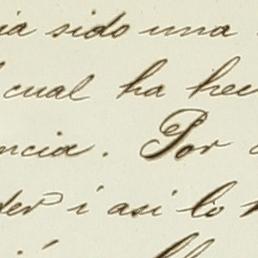 ia sido una
cual ha hec
ncia. Por
der i asi lo